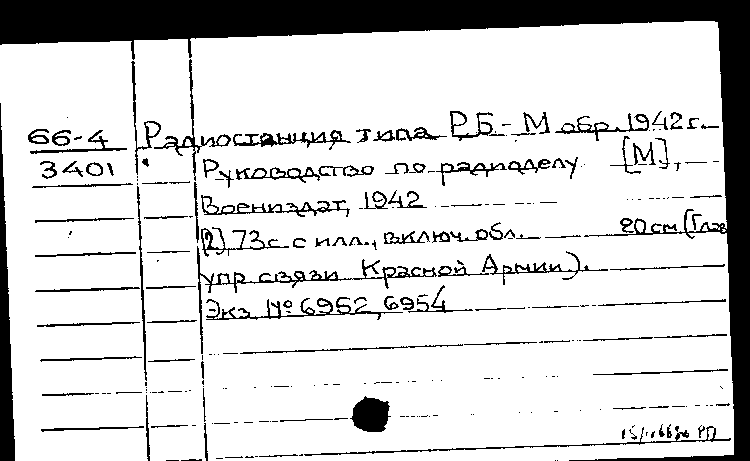 66-4 Радиостанция типа РБ-М обр. 1942 г.
3401 Руководство по радиоделу [М],
Воениздат, 1942
[2], 73 с. с илл., включ. обл. 20 см. (Глав
упр. связи Красной Армии).
Экз. № 6952, 6954